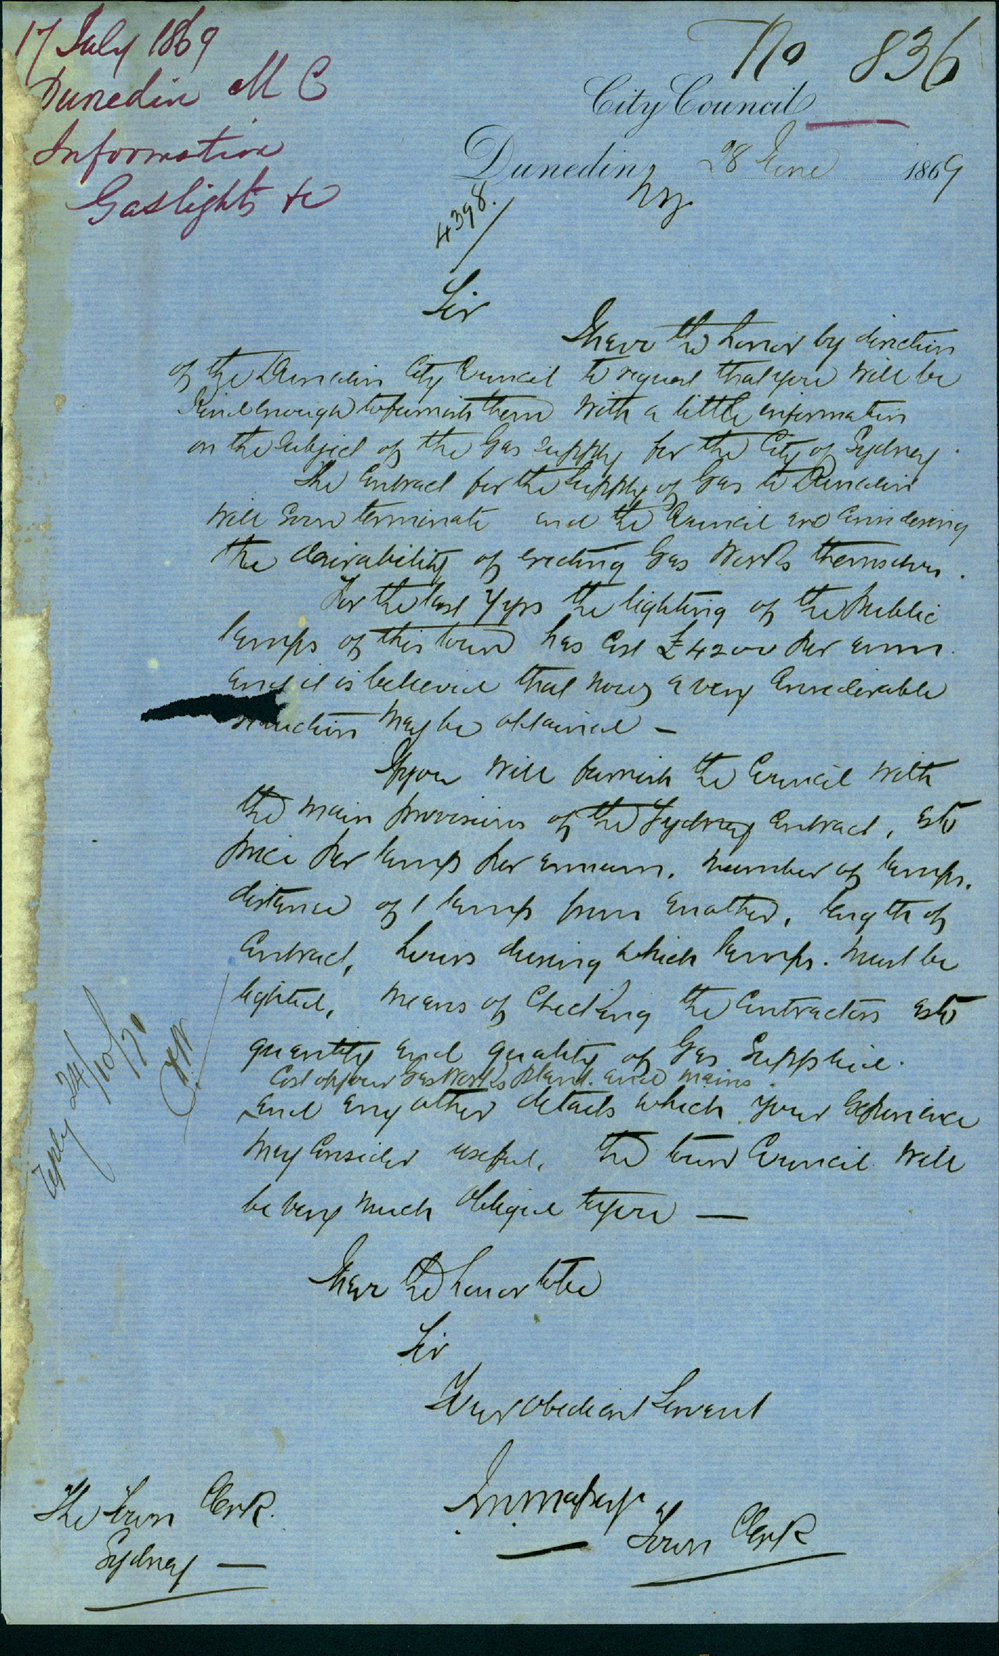 17 July 1869
Dunedin M C
Information
Gaslights &c
No 836
City Council
Dunedin 28 June 1869
NZ
4398.
Sir
I have the honor by direction
of the Dunedin City Council to request that you will be
kind enough to furnish them with a little information
on the subject of the Gas supply for the City of Sydney.
The Contract for the supply of Gas to Dunedin
will soon terminate and the Council are considering
the desirability of erecting Gas Works themselves.
For the last 7 yrs the lighting of the Public
lamps of this town has cost £4200 per annm.
and it is believed that now a very considerable
reduction may be obtained —
If you will furnish the Council with
the main provisions of the Sydney Contract, as to
price per lamp per annum. number of lamps.
distance of 1 lamp from another, length of
Contract, hours during which lamps. must be
lighted, means of checking the Contractors as to
quantity and quality of Gas supplied.
Cost of your Gas Works Plant and mains
and any other details which your Experience
may consider useful, the town Council will
be very much obliged to you —
Reply 24/10/70
I have the honor to be
Sir
Your obedient Servant
Town Clerk
The Town Clerk.
Sydney —